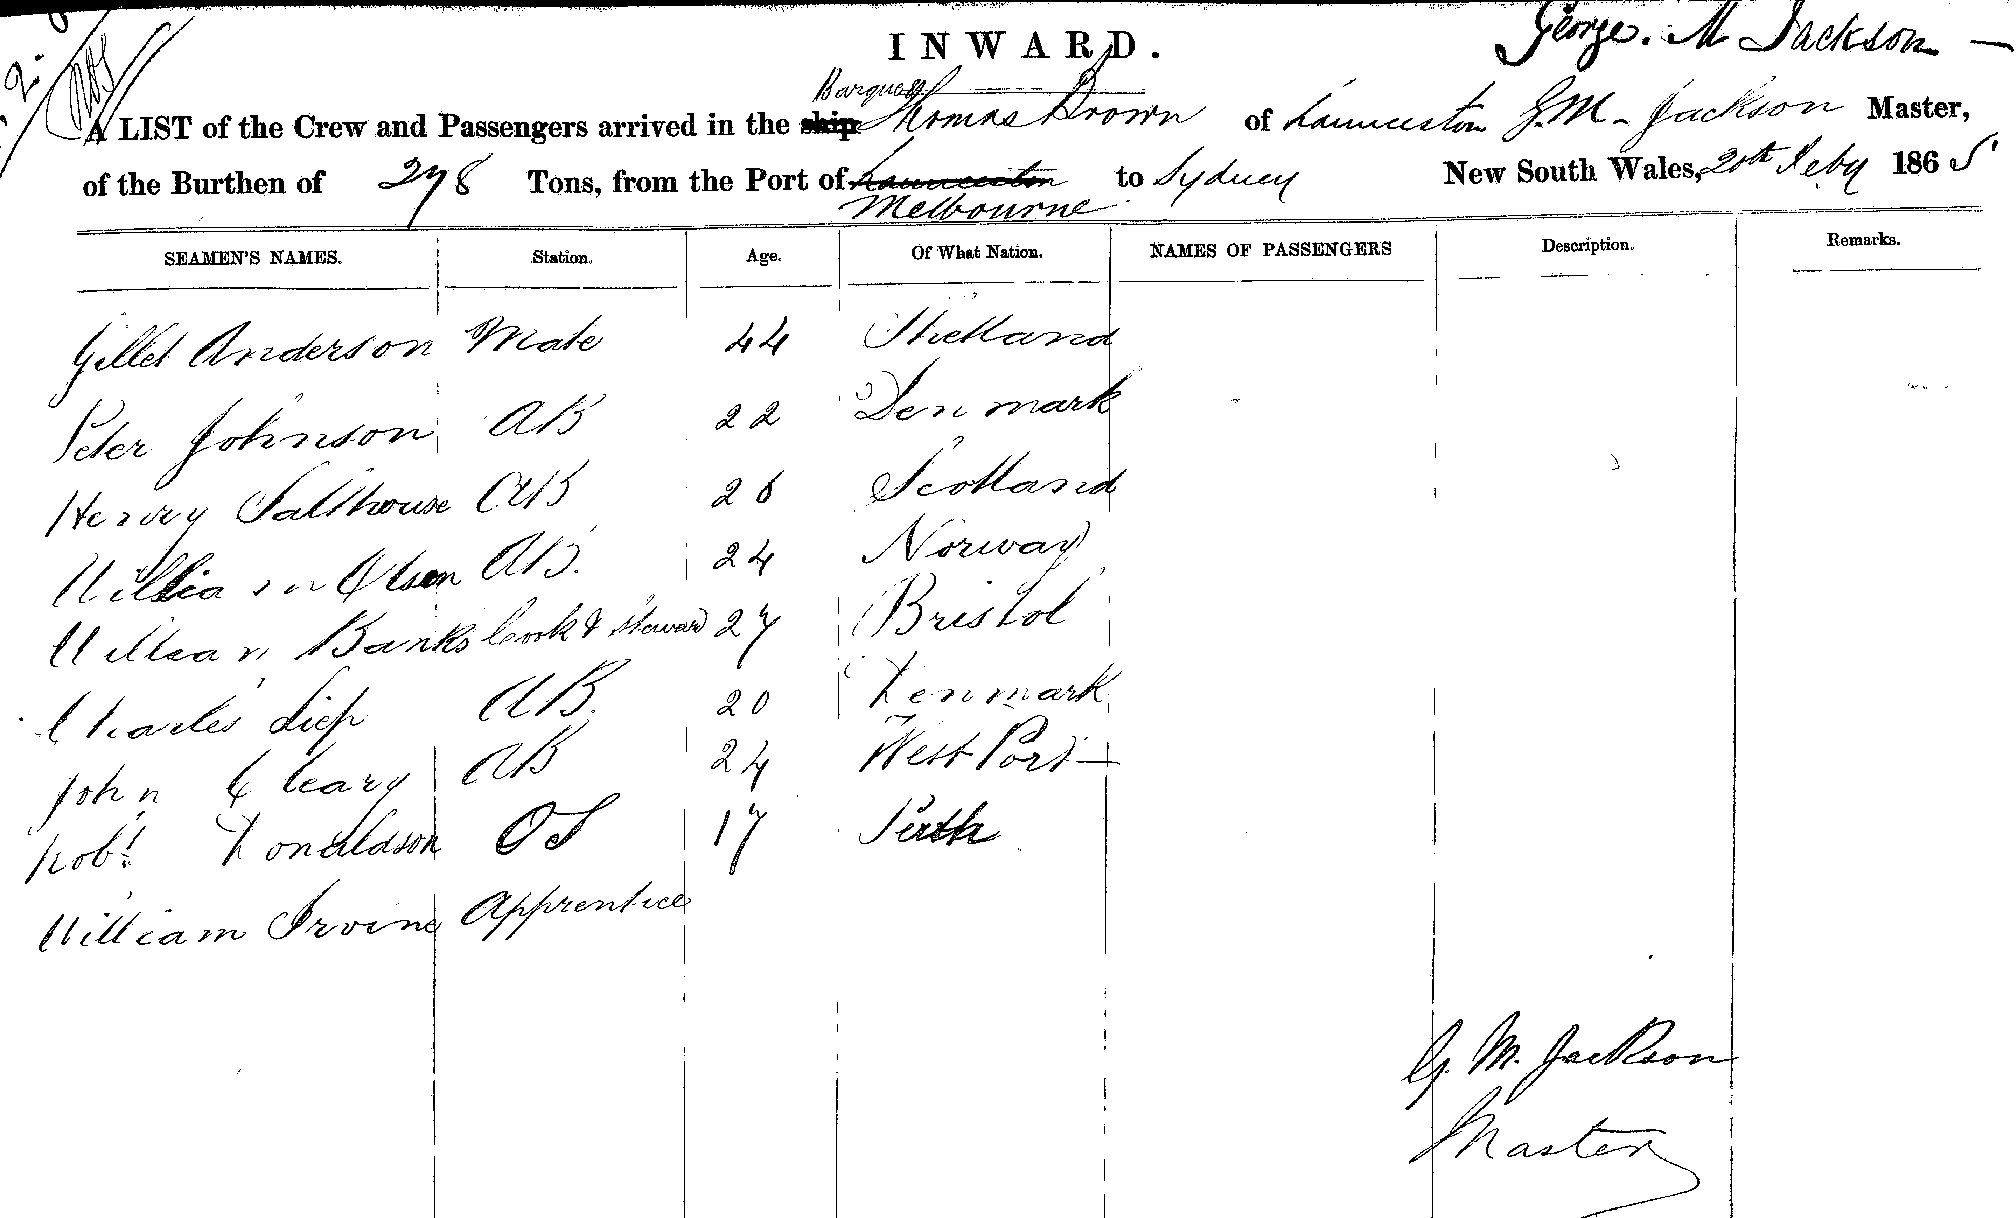 INWARD.
George. M Jackson —
Barque
A LIST of the Crew and Passengers arrived in the ship Thomas Brown of Launceston G. M. Jackson Master,
of the Burthen of 278 Tons, from the Port of Launceston to Sydney New South Wales, 20th Feby 1865
Melbourne
SEAMEN'S NAMES. Station. Age. Of What Nation. NAMES OF PASSENGERS Description. Remarks.
Gillet Anderson Mate 44 Shetland
Peter Johnson AB 22 Denmark
Henry Salthouse AB 26 Scotland
William Olsen AB. 24 Norway
William Banks Cook & Steward 27 Bristol
Charles Liep AB. 20 Denmark
John Cleary AB 24 West Port
Robt Donaldson OS 17 Perth
William Irvine Apprentice
G. M. Jackson
Master